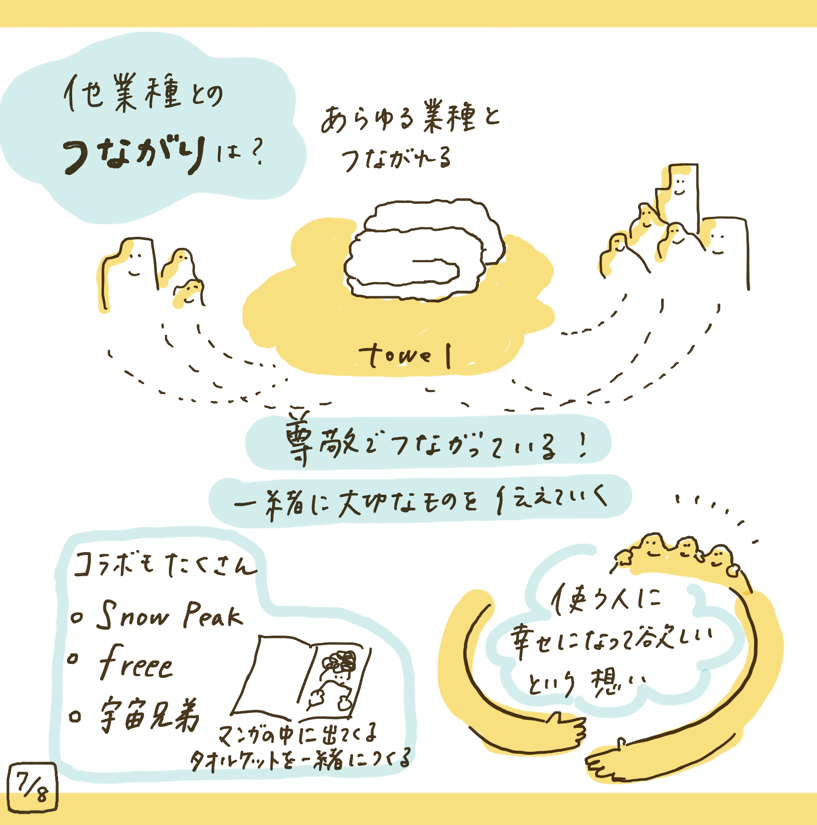 他業種との
つながりは?
あらゆる業種と
つながれる
towel
尊敬でつながっている!
一緒に大切なものを伝えていく
コラボもたくさん
Snow Peak
freee
宇宙兄弟
マンガの中に出てくる
タオルケットを一緒につくる
使う人に
幸せになって欲しい
という想い
7/8